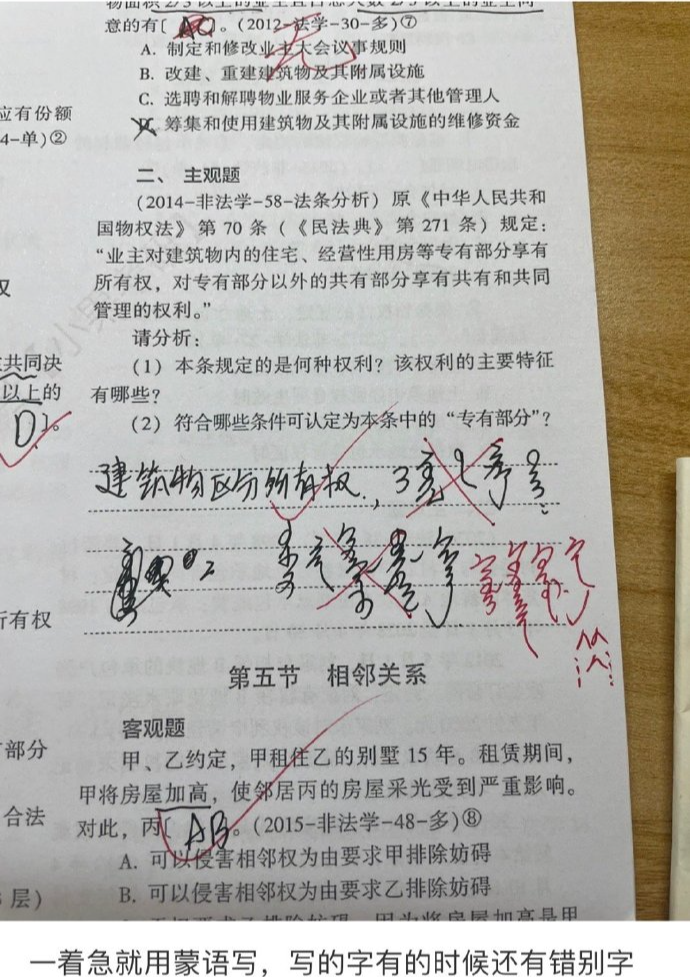 意的有〔 〕。(2012-法学-30-多)⑦
A. 制定和修改业主大会议事规则
B. 改建、重建建筑物及其附属设施
C. 选聘和解聘物业服务企业或者其他管理人
D. 筹集和使用建筑物及其附属设施的维修资金
应有份额
4-单)②
二、主观题
(2014-非法学-58-法条分析)原《中华人民共和
国物权法》第 70 条(《民法典》第 271 条)规定:
“业主对建筑物内的住宅、经营性用房等专有部分享有
所有权,对专有部分以外的共有部分享有共有和共同
管理的权利。”
请分析:
共同决
以上的
D〕。
(1) 本条规定的是何种权利?该权利的主要特征
有哪些?
(2) 符合哪些条件可认定为本条中的“专有部分”?
建筑物区分所有权.,
所有权
部分
合法
层)
第五节 相邻关系
客观题
甲、乙约定,甲租住乙的别墅 15 年。租赁期间,
甲将房屋加高,使邻居丙的房屋采光受到严重影响。
对此,丙〔 AB 〕。(2015-非法学-48-多)⑧
A. 可以侵害相邻权为由要求甲排除妨碍
B. 可以侵害相邻权为由要求乙排除妨碍
一着急就用蒙语写,写的字有的时候还有错别字